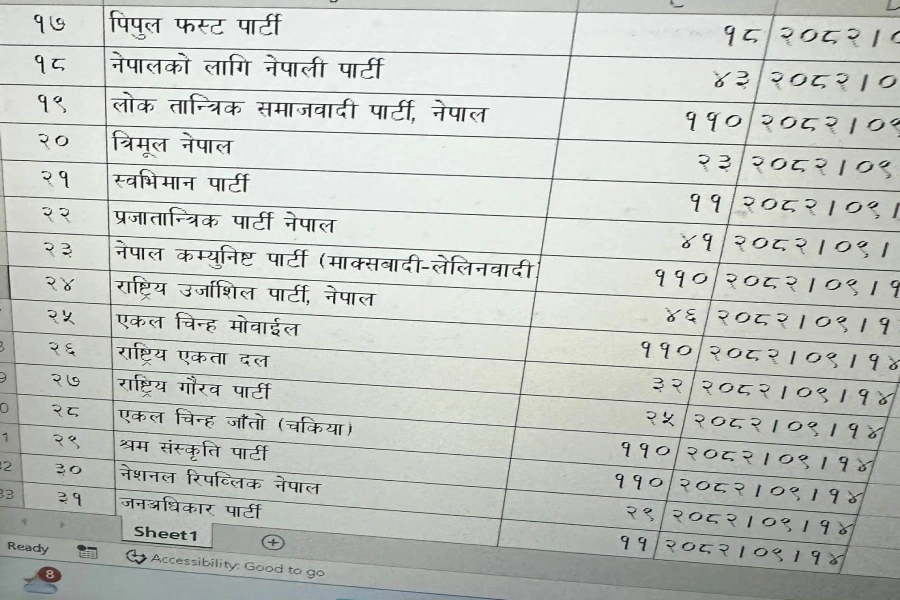 १७ पिपुल फस्ट पार्टी १८ २०८२।०
१८ नेपालको लागि नेपाली पार्टी ४३ २०८२।०
१९ लोक तान्त्रिक समाजवादी पार्टी, नेपाल ११० २०८२।०९
२० त्रिमूल नेपाल २३ २०८२।०९
२१ स्वभिमान पार्टी ११ २०८२।०९।
२२ प्रजातान्त्रिक पार्टी नेपाल ४१ २०८२।०९।
२३ नेपाल कम्युनिष्ट पार्टी (माक्सबादी-लेलिनवादी) ११० २०८२।०९।१
२४ राष्ट्रिय उर्जाशिल पार्टी, नेपाल ४६ २०८२।०९।१
२५ एकल चिन्ह मोवाईल ११० २०८२।०९।१४
२६ राष्ट्रिय एकता दल ३२ २०८२।०९।१४
२७ राष्ट्रिय गौरव पार्टी २५ २०८२।०९।१४
२८ एकल चिन्ह जाँतो (चकिया) ११० २०८२।०९।१४
२९ श्रम संस्कृति पार्टी ११० २०८२।०९।१४
३० नेशनल रिपव्लिक नेपाल २९ २०८२।०९।१४
33 ३१ जनअधिकार पार्टी ११ २०८२।०९।१४
Sheet1
Ready Accessibility: Good to go
8